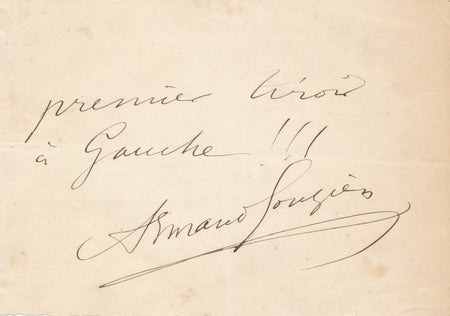 premier tiroir
à Gauche !!!
Armand Gouzien